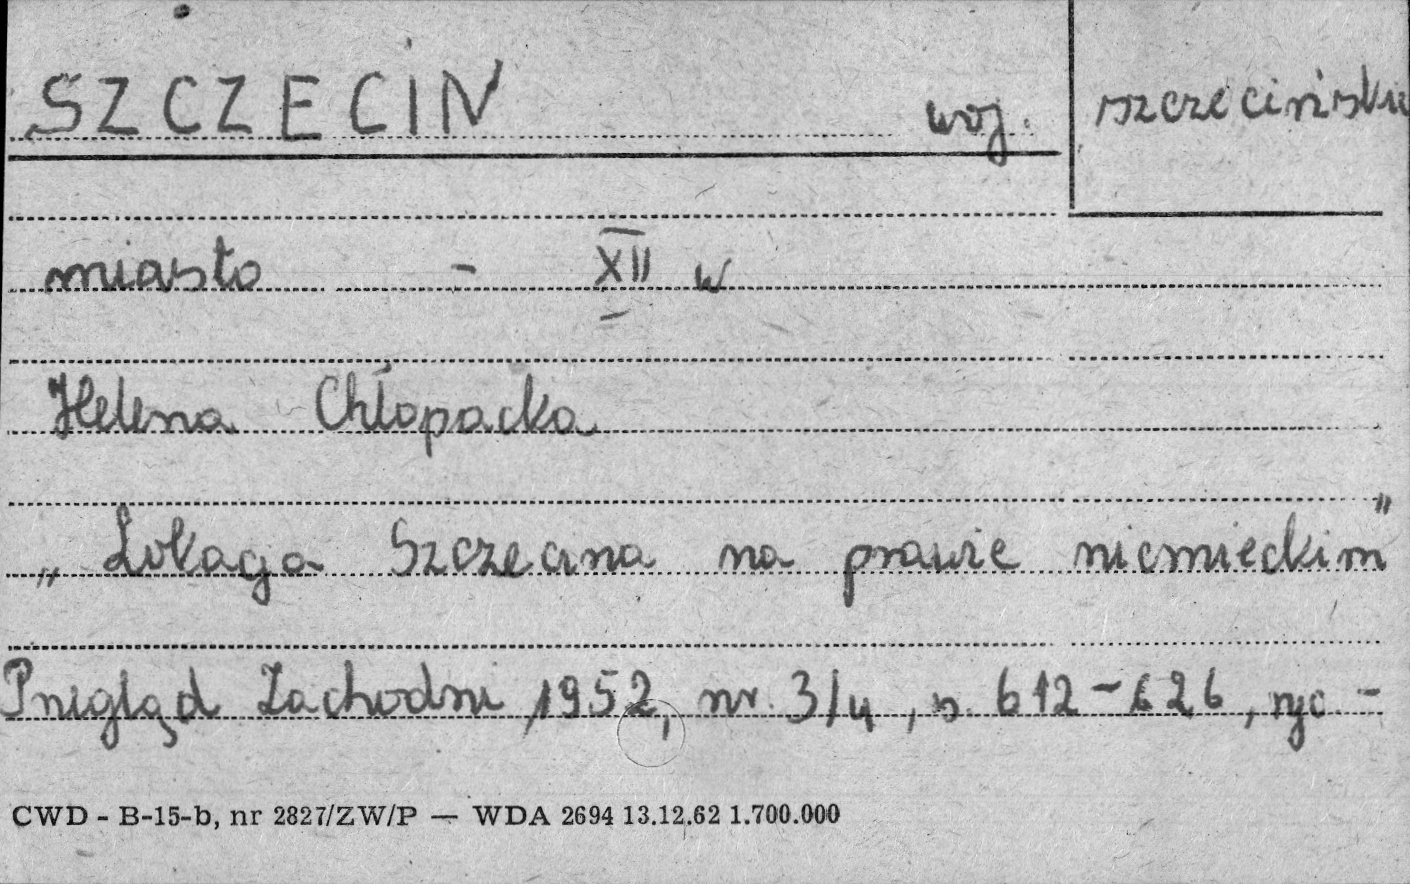 SZCZECIN woj. szczecińskie
miasto - XII w
Helena Chłopacka
„Lokacja Szczecina na prawie niemieckim"
Przegląd Zachodni, 1952, nr. 3/4, s. 612-626, ryc -
CWD - B-15-b, nr 2827/ZW/P — WDA 2694 13.12.62 1.700.000